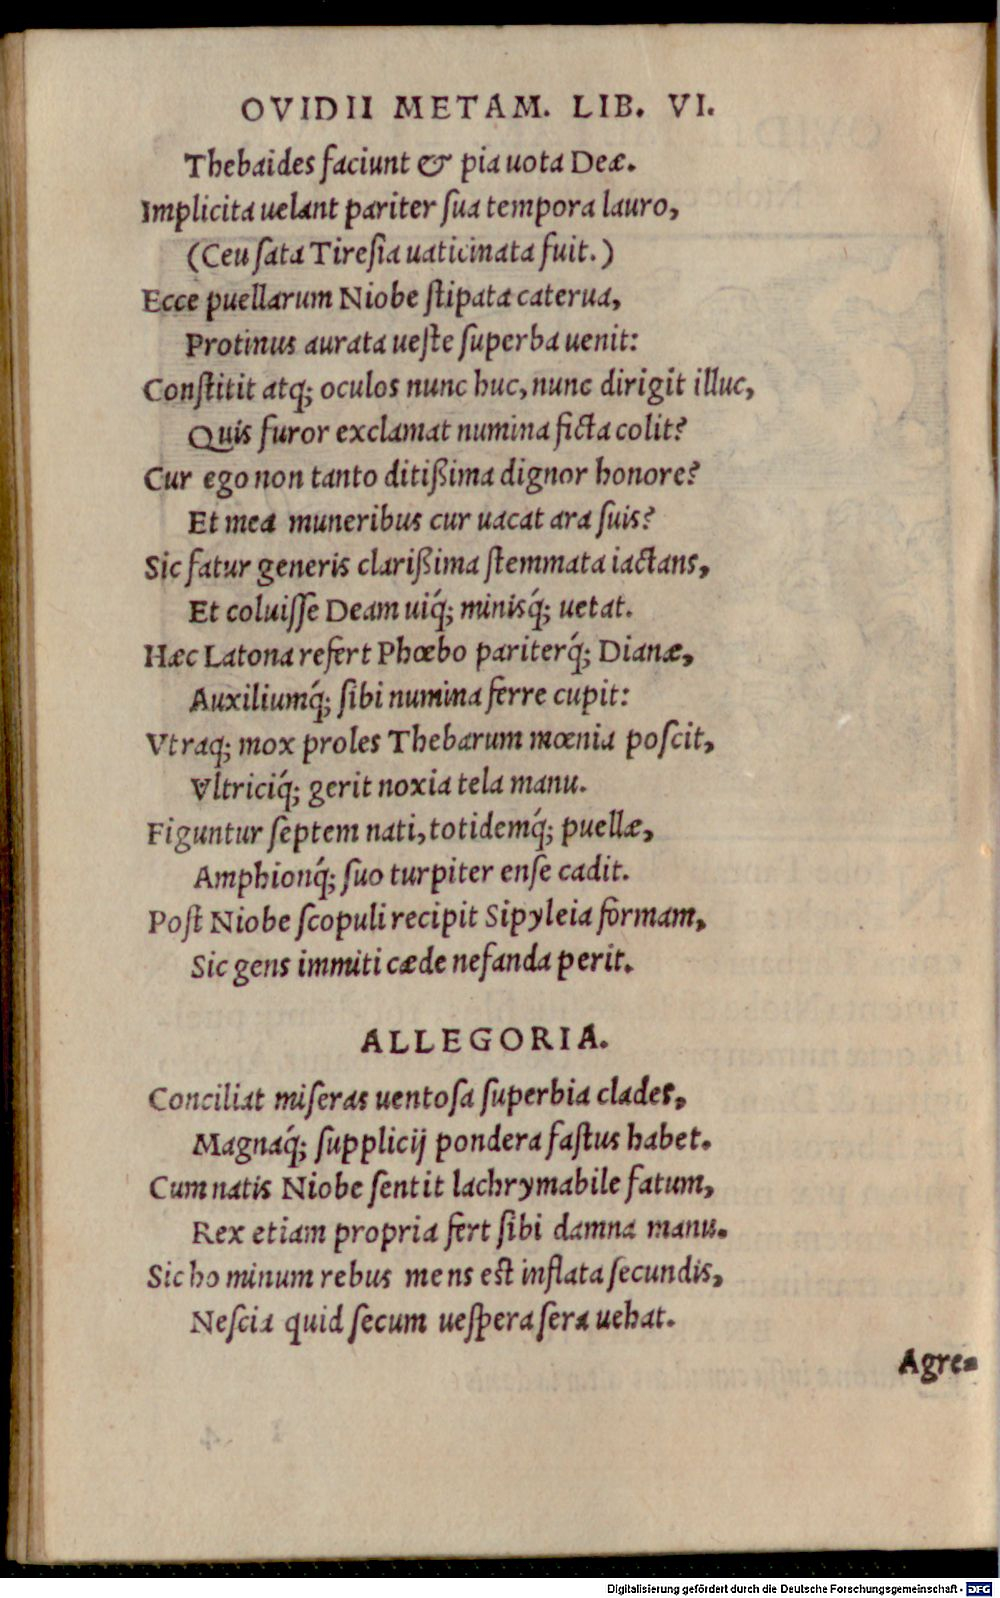 OVIDII METAM. LIB. VI.
Thebaides faciunt & pia uota Deæ.
Implicita uelant pariter ſua tempora lauro,
(Ceu ſata Tireſia uaticinata fuit.)
Ecce puellarum Niobe ſtipata caterua,
Protinus aurata ueſte ſuperba uenit:
Conſtitit atq; oculos nunc huc, nunc dirigit illuc,
Quis furor exclamat numina ficta colit?
Cur ego non tanto ditißima dignor honore?
Et mea muneribus cur uacat ara ſuis?
Sic fatur generis clarißima ſtemmata iactans,
Et coluiſſe Deam uiq́; minisq́; uetat.
Hæc Latona refert Phœbo pariterq́; Dianæ,
Auxiliumq́; ſibi numina ferre cupit:
Vtraq; mox proles Thebarum mœnia poſcit,
Vltriciq́; gerit noxia tela manu.
Figuntur ſeptem nati, totidemq́; puellæ,
Amphionq́; ſuo turpiter enſe cadit.
Poſt Niobe ſcopuli recipit Sipyleia formam,
Sic gens immiti cæde nefanda perit.
ALLEGORIA.
Conciliat miſeras uentoſa ſuperbia clades,
Magnaq́; ſupplicij pondera faſtus habet.
Cum natis Niobe ſentit lachrymabile fatum,
Rex etiam propria fert ſibi damna manu.
Sic ho minum rebus mens eſt inflata ſecundis,
Neſcia quid ſecum ueſpera ſera uehat.
Agre=
Digitalisierung gefördert durch die Deutsche Forschungsgemeinschaft - DFG